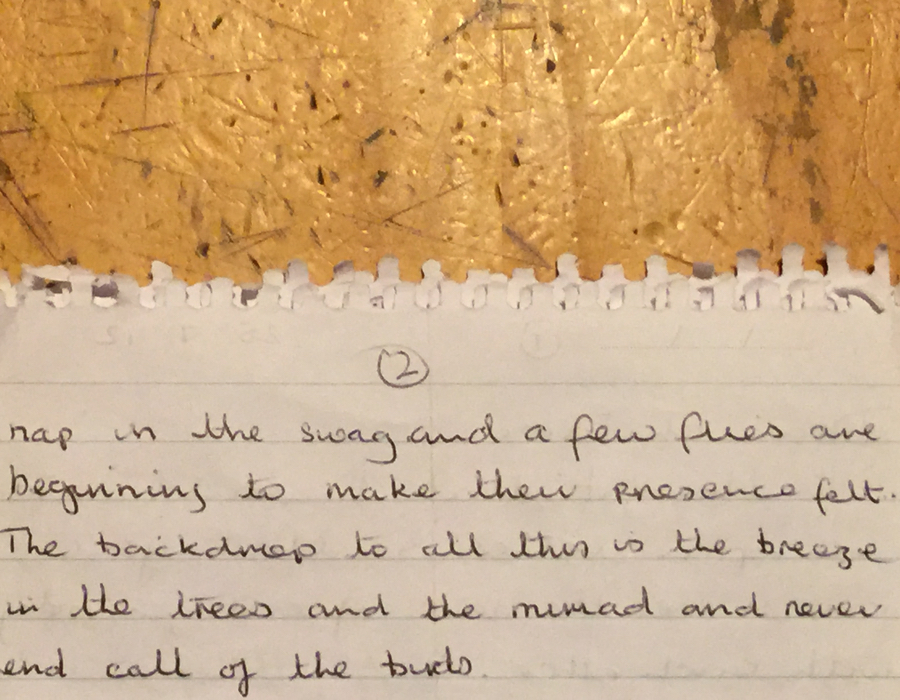 2
nap in the swag and a few flies are
beginning to make their presence felt.
The backdrop to all this is the breeze
in the trees and the and never
end call of the birds